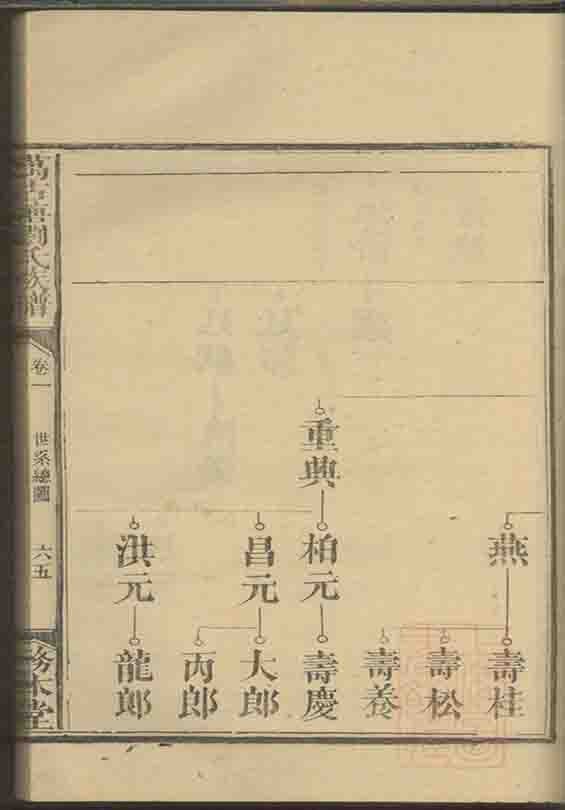 重興
燕
柏元
昌元
洪元
壽桂
壽松
壽養
壽慶
大郎
丙郎
龍郎
劉氏族譜
卷一
世系總圖
六五
務本堂